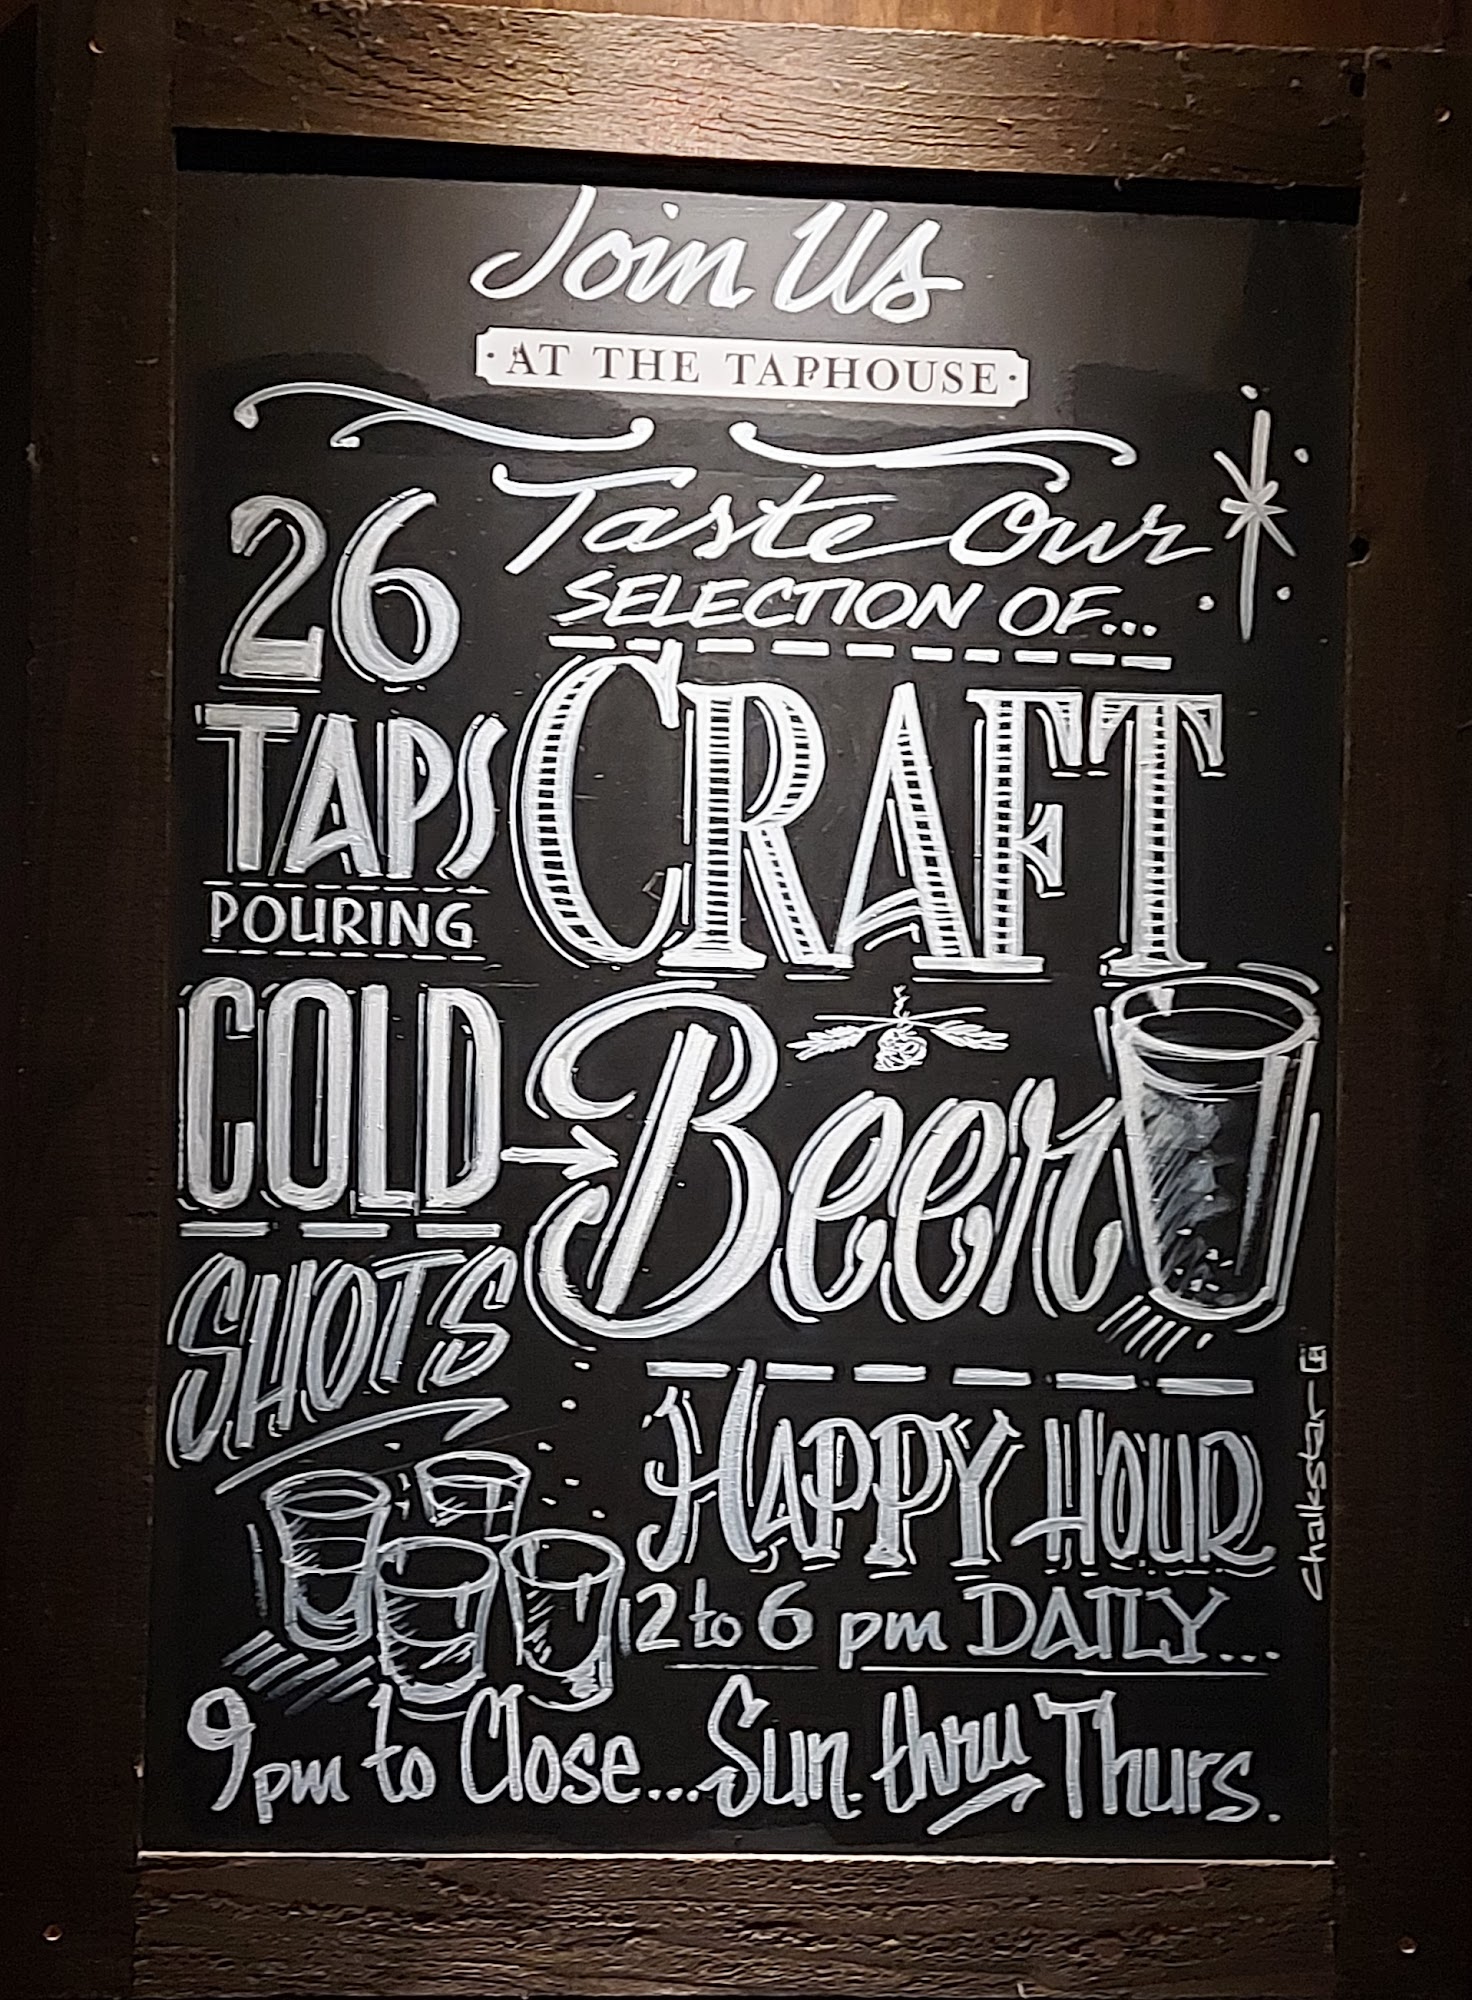 Join Us
· AT THE TAPHOUSE ·
Taste Our
SELECTION OF...
CRAFT
Beer
26
TAPS
POURING
COLD
SHOTS
HAPPY HOUR
12 to 6 pm DAILY...
9pm to Close... Sun. thru Thurs.
Chalkstar